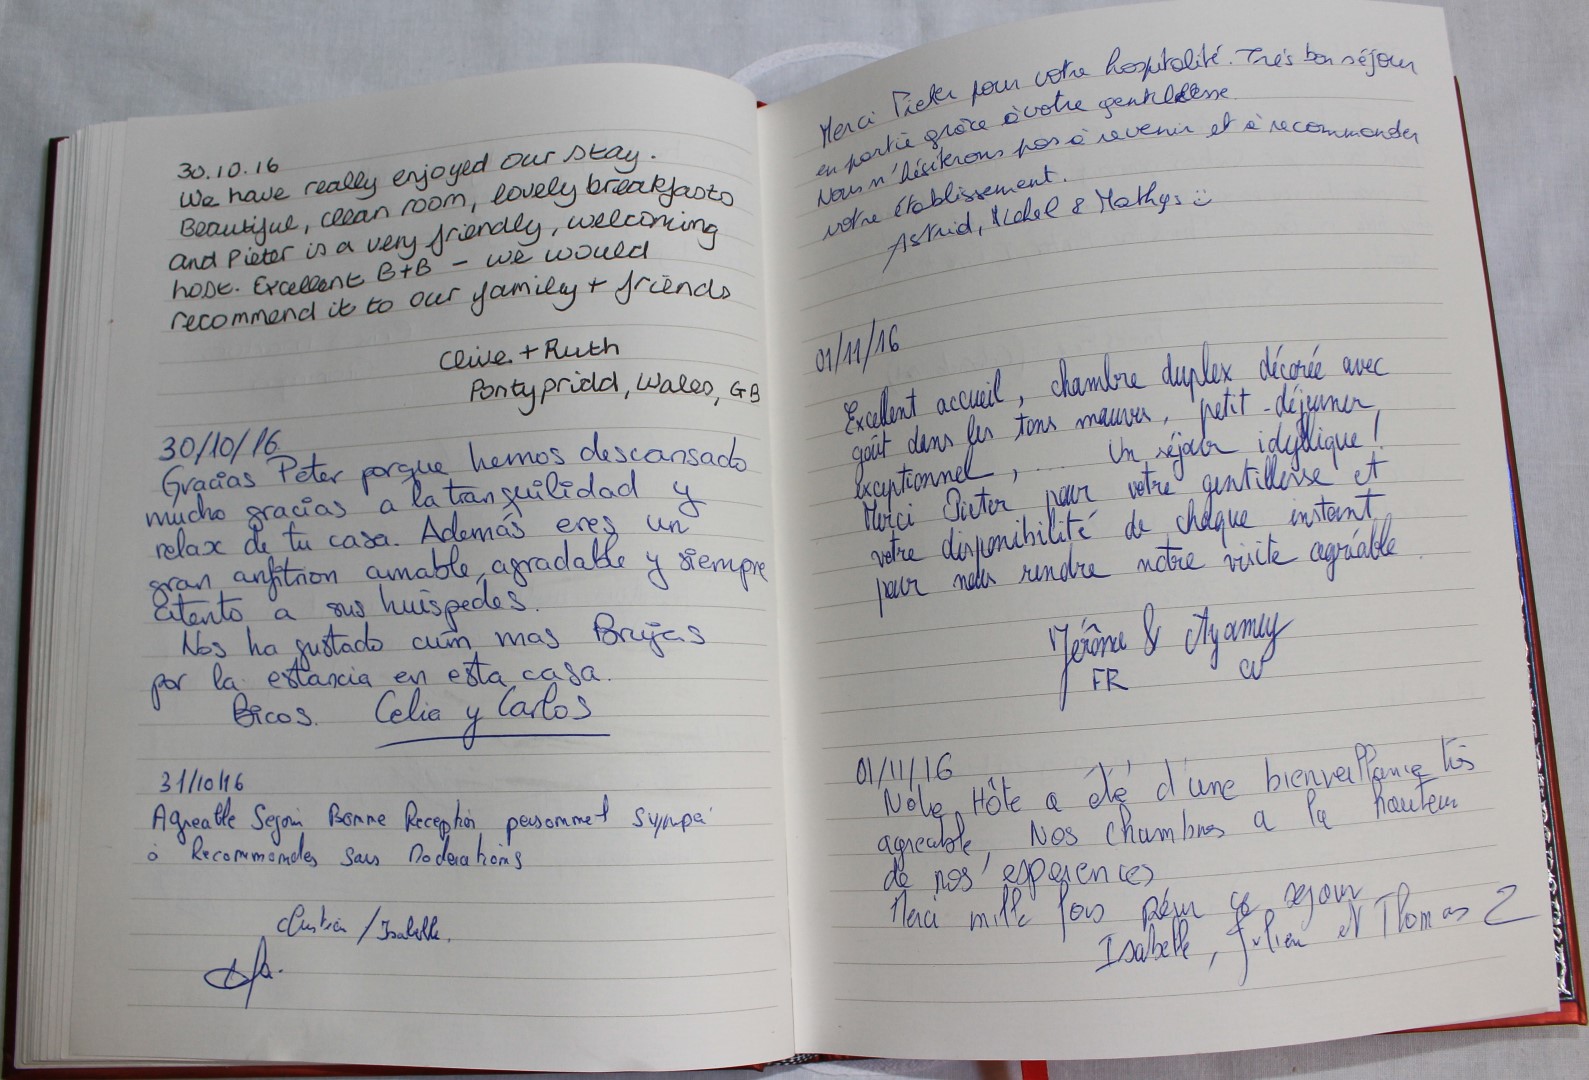 30.10.16
We have really enjoyed our stay.
Beautiful, clean room, lovely breakfasts
and Pieter is a very friendly, welcoming
host. Excellent B+B - we would
recommend it to our family + friends
Clive + Ruth
Pontypridd, Wales, GB
30/10/16
Gracias Peter porque hemos descansado
mucho gracias a la tranquilidad y
relax de tu casa. Además eres un
gran anfitrion amable, agradable y siempre
atento a sus huispedes.
Nos ha gustado aún mas Brujas
por la estancia en esta casa.
Bicos. Celia y Carlos
31/10/16
Agreable Sejour Bonne Reception sympa
à Recommandes sans
/Isabelle.
Merci Pieter pour votre hospitalité. Très bon séjour
en partie grâce à votre gentillesse
Nous n'hésiterons pas à revenir et à recommander
votre établissement.
Astrid, Michel & Mathys
01/11/16
Excellent accueil, chambre duplex décorée avec
goût dans les tons mauves, petit-déjeuner
exceptionnel, ... Un séjour idyllique!
Merci Pieter pour votre gentillesse et
votre disponibilité de chaque instant
pour nous rendre notre visite agréable.
Jérôme &
FR
01/11/16
Notre Hôte a été d'une bienveillance très
agreable, Nos chambres a la hauteur
de nos esperences
Merci mille fois pour ce sejour
Isabelle, Julien et Thomas